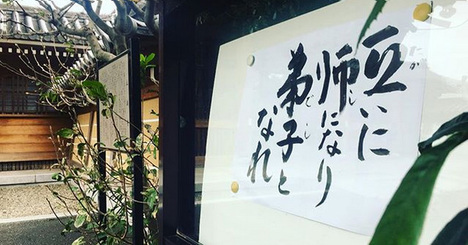 互いに
師になり
弟子と
なれ